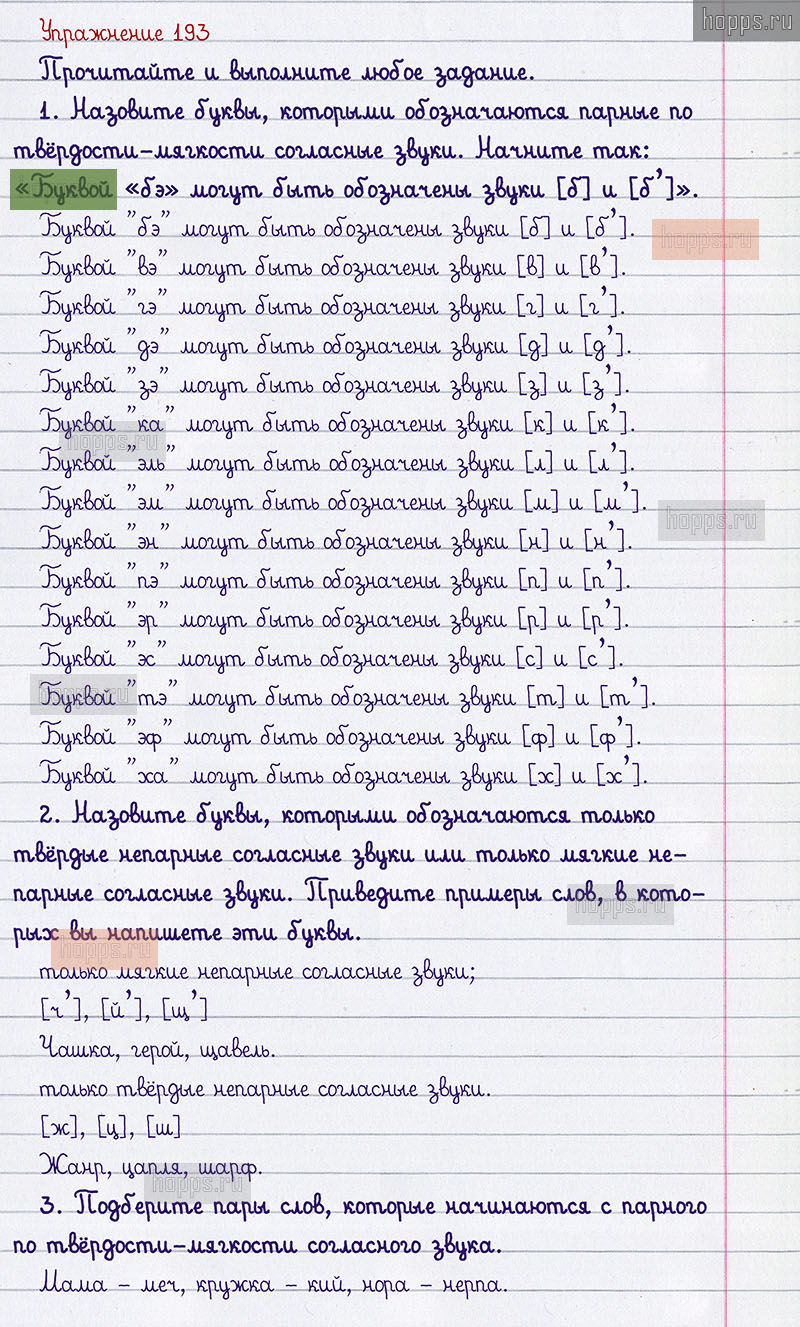 hopps.ru
Упражнение 193
Прочитайте и выполните любое задание.
1. Назовите буквы, которыми обозначаются парные по
твёрдости-мягкости согласные звуки. Начните так:
«Буквой «бэ» могут быть обозначены звуки [б] и [б’]».
Буквой "бэ" могут быть обозначены звуки [б] и [б’].
hopps.ru
Буквой "вэ" могут быть обозначены звуки [в] и [в’].
Буквой "гэ" могут быть обозначены звуки [г] и [г’].
Буквой "дэ" могут быть обозначены звуки [д] и [д’].
Буквой "зэ" могут быть обозначены звуки [з] и [з’].
Буквой "ка" могут быть обозначены звуки [к] и [к’].
hopps.ru
Буквой "эль" могут быть обозначены звуки [л] и [л’].
Буквой "эм" могут быть обозначены звуки [м] и [м’].
hopps.ru
Буквой "эн" могут быть обозначены звуки [н] и [н’].
Буквой "пэ" могут быть обозначены звуки [п] и [п’].
Буквой "эр" могут быть обозначены звуки [р] и [р’].
Буквой "эс" могут быть обозначены звуки [с] и [с’].
Буквой "тэ" могут быть обозначены звуки [т] и [т’].
hopps.ru
Буквой "эф" могут быть обозначены звуки [ф] и [ф’].
Буквой "ха" могут быть обозначены звуки [х] и [х’].
2. Назовите буквы, которыми обозначаются только
твёрдые непарные согласные звуки или только мягкие не-
парные согласные звуки. Приведите примеры слов, в кото-
hopps.ru
рых вы напишете эти буквы.
hopps.ru
только мягкие непарные согласные звуки;
[ч’], [й’], [щ’]
Чашка, герой, щавель.
только твёрдые непарные согласные звуки.
[ж], [ц], [ш]
Жанр, цапля, шарф.
hopps.ru
3. Подберите пары слов, которые начинаются с парного
по твёрдости-мягкости согласного звука.
Мама - меч, кружка - кий, нора - нерпа.